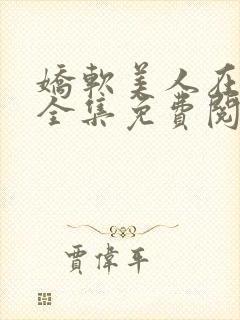 嬌軟美人在
全集免費閱
賈偉平